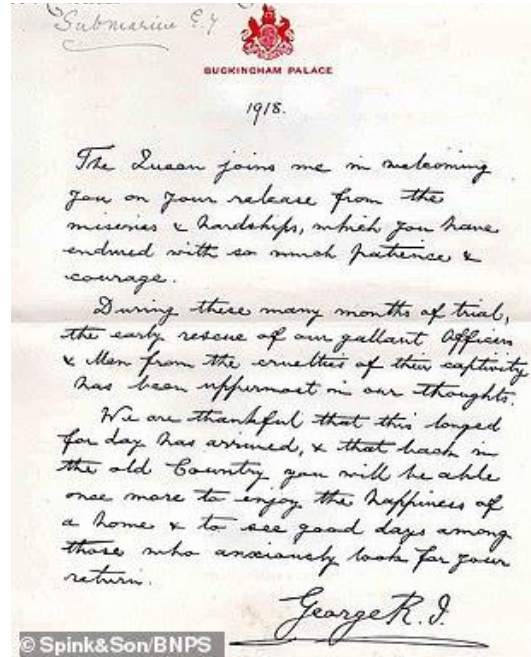 Submarine E.7
BUCKINGHAM PALACE
1918.
The Queen joins me in welcoming
you on your release from the
miseries & hardships, which you have
endured with so much patience &
courage.
During these many months of trial,
the early rescue of our gallant Officers
& Men from the cruelties of their captivity
has been uppermost in our thoughts.
We are thankful that this longed
for day has arrived, & that back in
the old Country you will be able
once more to enjoy the happiness of
a home & to see good days among
those who anxiously look for your
return.
George R.I.
© Spink&Son/BNPS